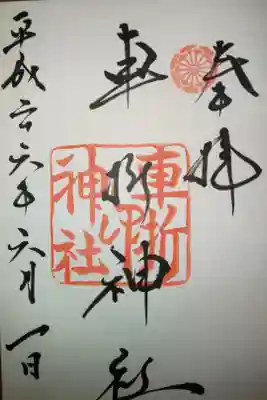 奉拝
車折神社
車折
神社
平成二十六年六月一日